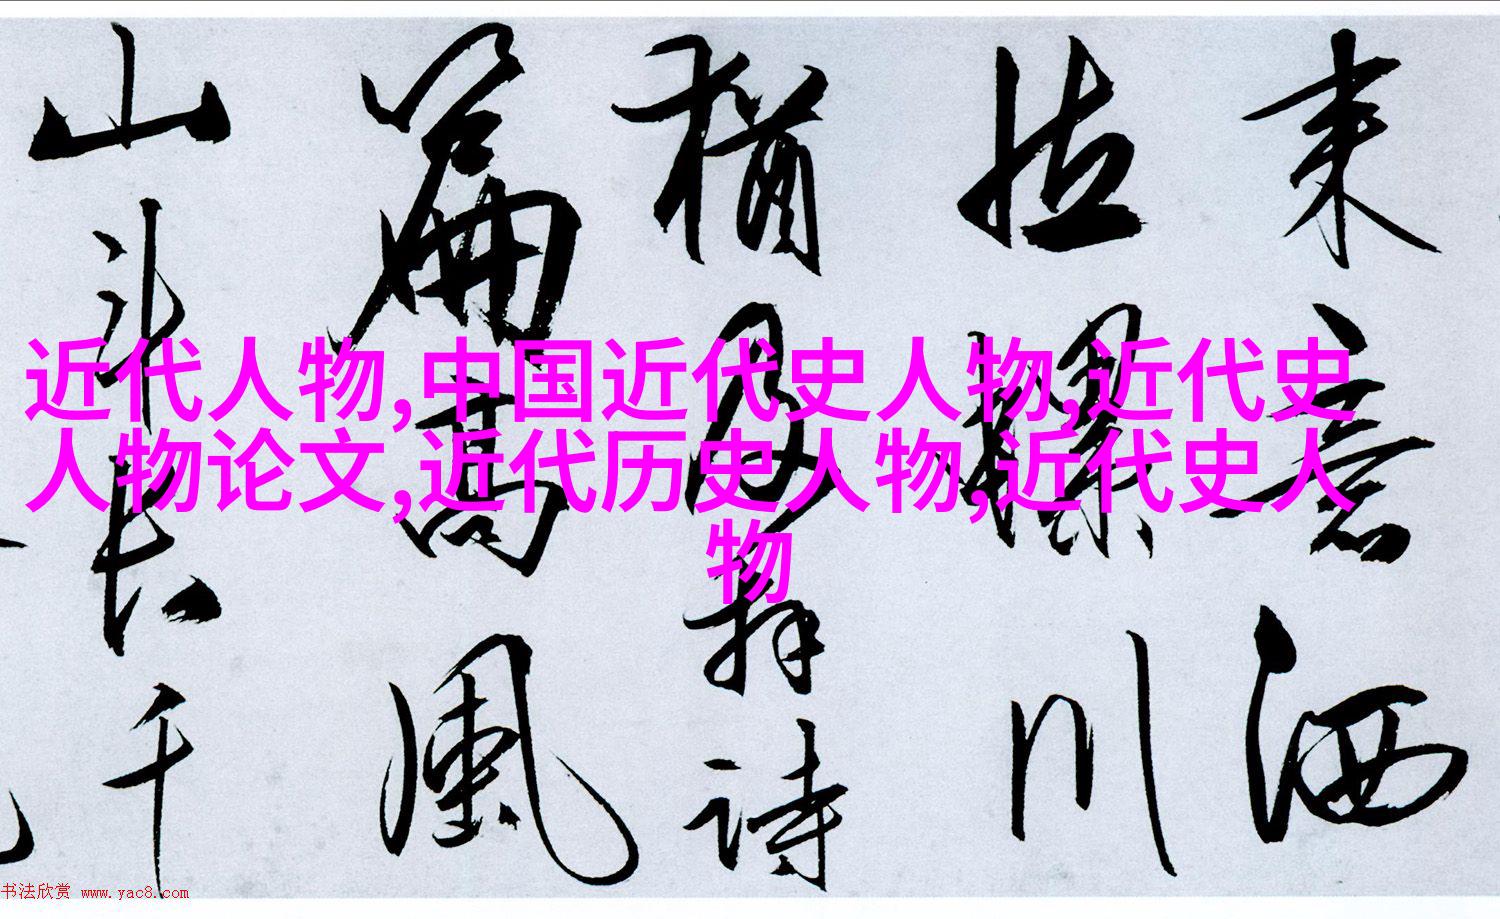 来意洒
拉
川
猶及拜詩
篇高風
山斗長千
近代人物,中国近代史人物,近代史
人物论文,近代历史人物,近代史人
物
书法欣赏 www.yac8.com